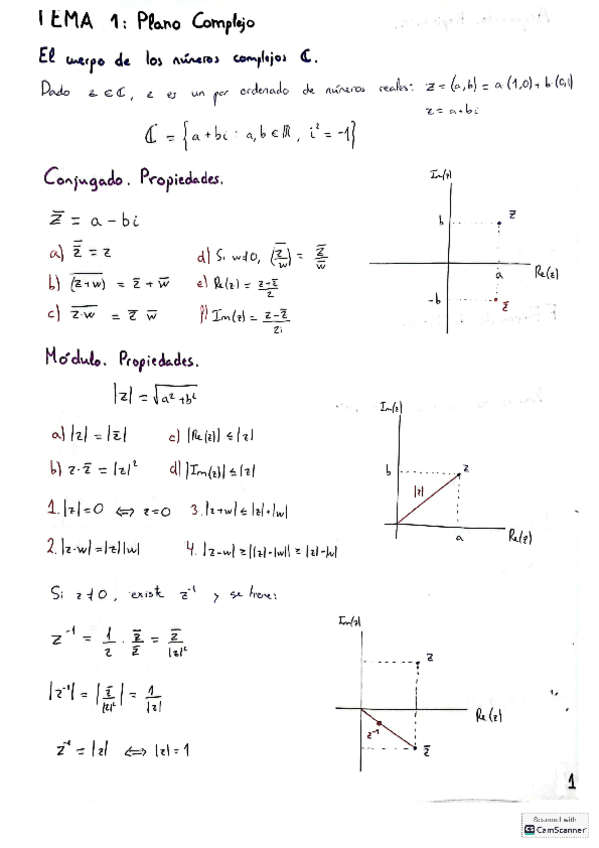 TEMA 1: Plano Complejo
El cuerpo de los números complejos ℂ.
Dado z ∈ ℂ, z es un par ordenado de números reales: z = (a,b) = a(1,0) + b(0,1)
z = a + bi
ℂ = {a + bi : a, b ∈ ℝ, i² = -1}
Conjugado. Propiedades.
z̅ = a - bi
a) z̿ = z
b) \overline{(z+w)} = z̅ + w̅
c) \overline{z·w} = z̅ w̅
d) Si w≠0, \overline{(z/w)} = z̅/w̅
e) Re(z) = (z-z̅)/2
f) Im(z) = (z-z̅)/2i
Im(z)
b
z
a
Re(z)
-b
z̅
Módulo. Propiedades.
|z| = √(a²+b²)
a) |z| = |z̅|
b) z·z̅ = |z|²
c) |Re(z)| ≤ |z|
d) |Im(z)| ≤ |z|
1. |z|=0 ⟺ z=0
2. |z·w| = |z||w|
3. |z+w| ≤ |z|+|w|
4. |z-w| ≥ ||z|-|w|| ≥ |z|-|w|
Im(z)
b
z
|z|
a
Re(z)
Si z≠0, existe z⁻¹ y se tiene:
z⁻¹ = 1/z · z̅/z̅ = z̅/|z|²
|z⁻¹| = |z̅/|z|²| = 1/|z|
z⁻¹ = |z| ⟺ |z| = 1
Im(z)
z
Re(z)
z⁻¹
z̅
1
Scanned with
CS CamScanner